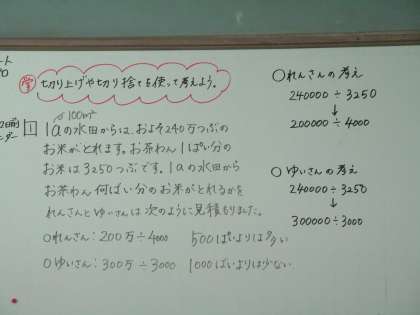 ート
学 切り上げや切り捨てを使って考えよう。
100m²
1 1aの水田からは、およそ240万つぶの
お米がとれます。お茶わん1ぱい分の
お米は3250つぶです。1aの水田から
お茶わん何ばい分のお米がとれるかを
れんさんとゆいさんは次のように見積もりました。
○れんさん:200万÷4000 500ぱいよりは多い
○ゆいさん:300万÷3000 1000ばいよりは少ない
○れんさんの考え
240000÷3250
↓
200000÷4000
○ゆいさんの考え
240000÷3250
↓
300000÷3000